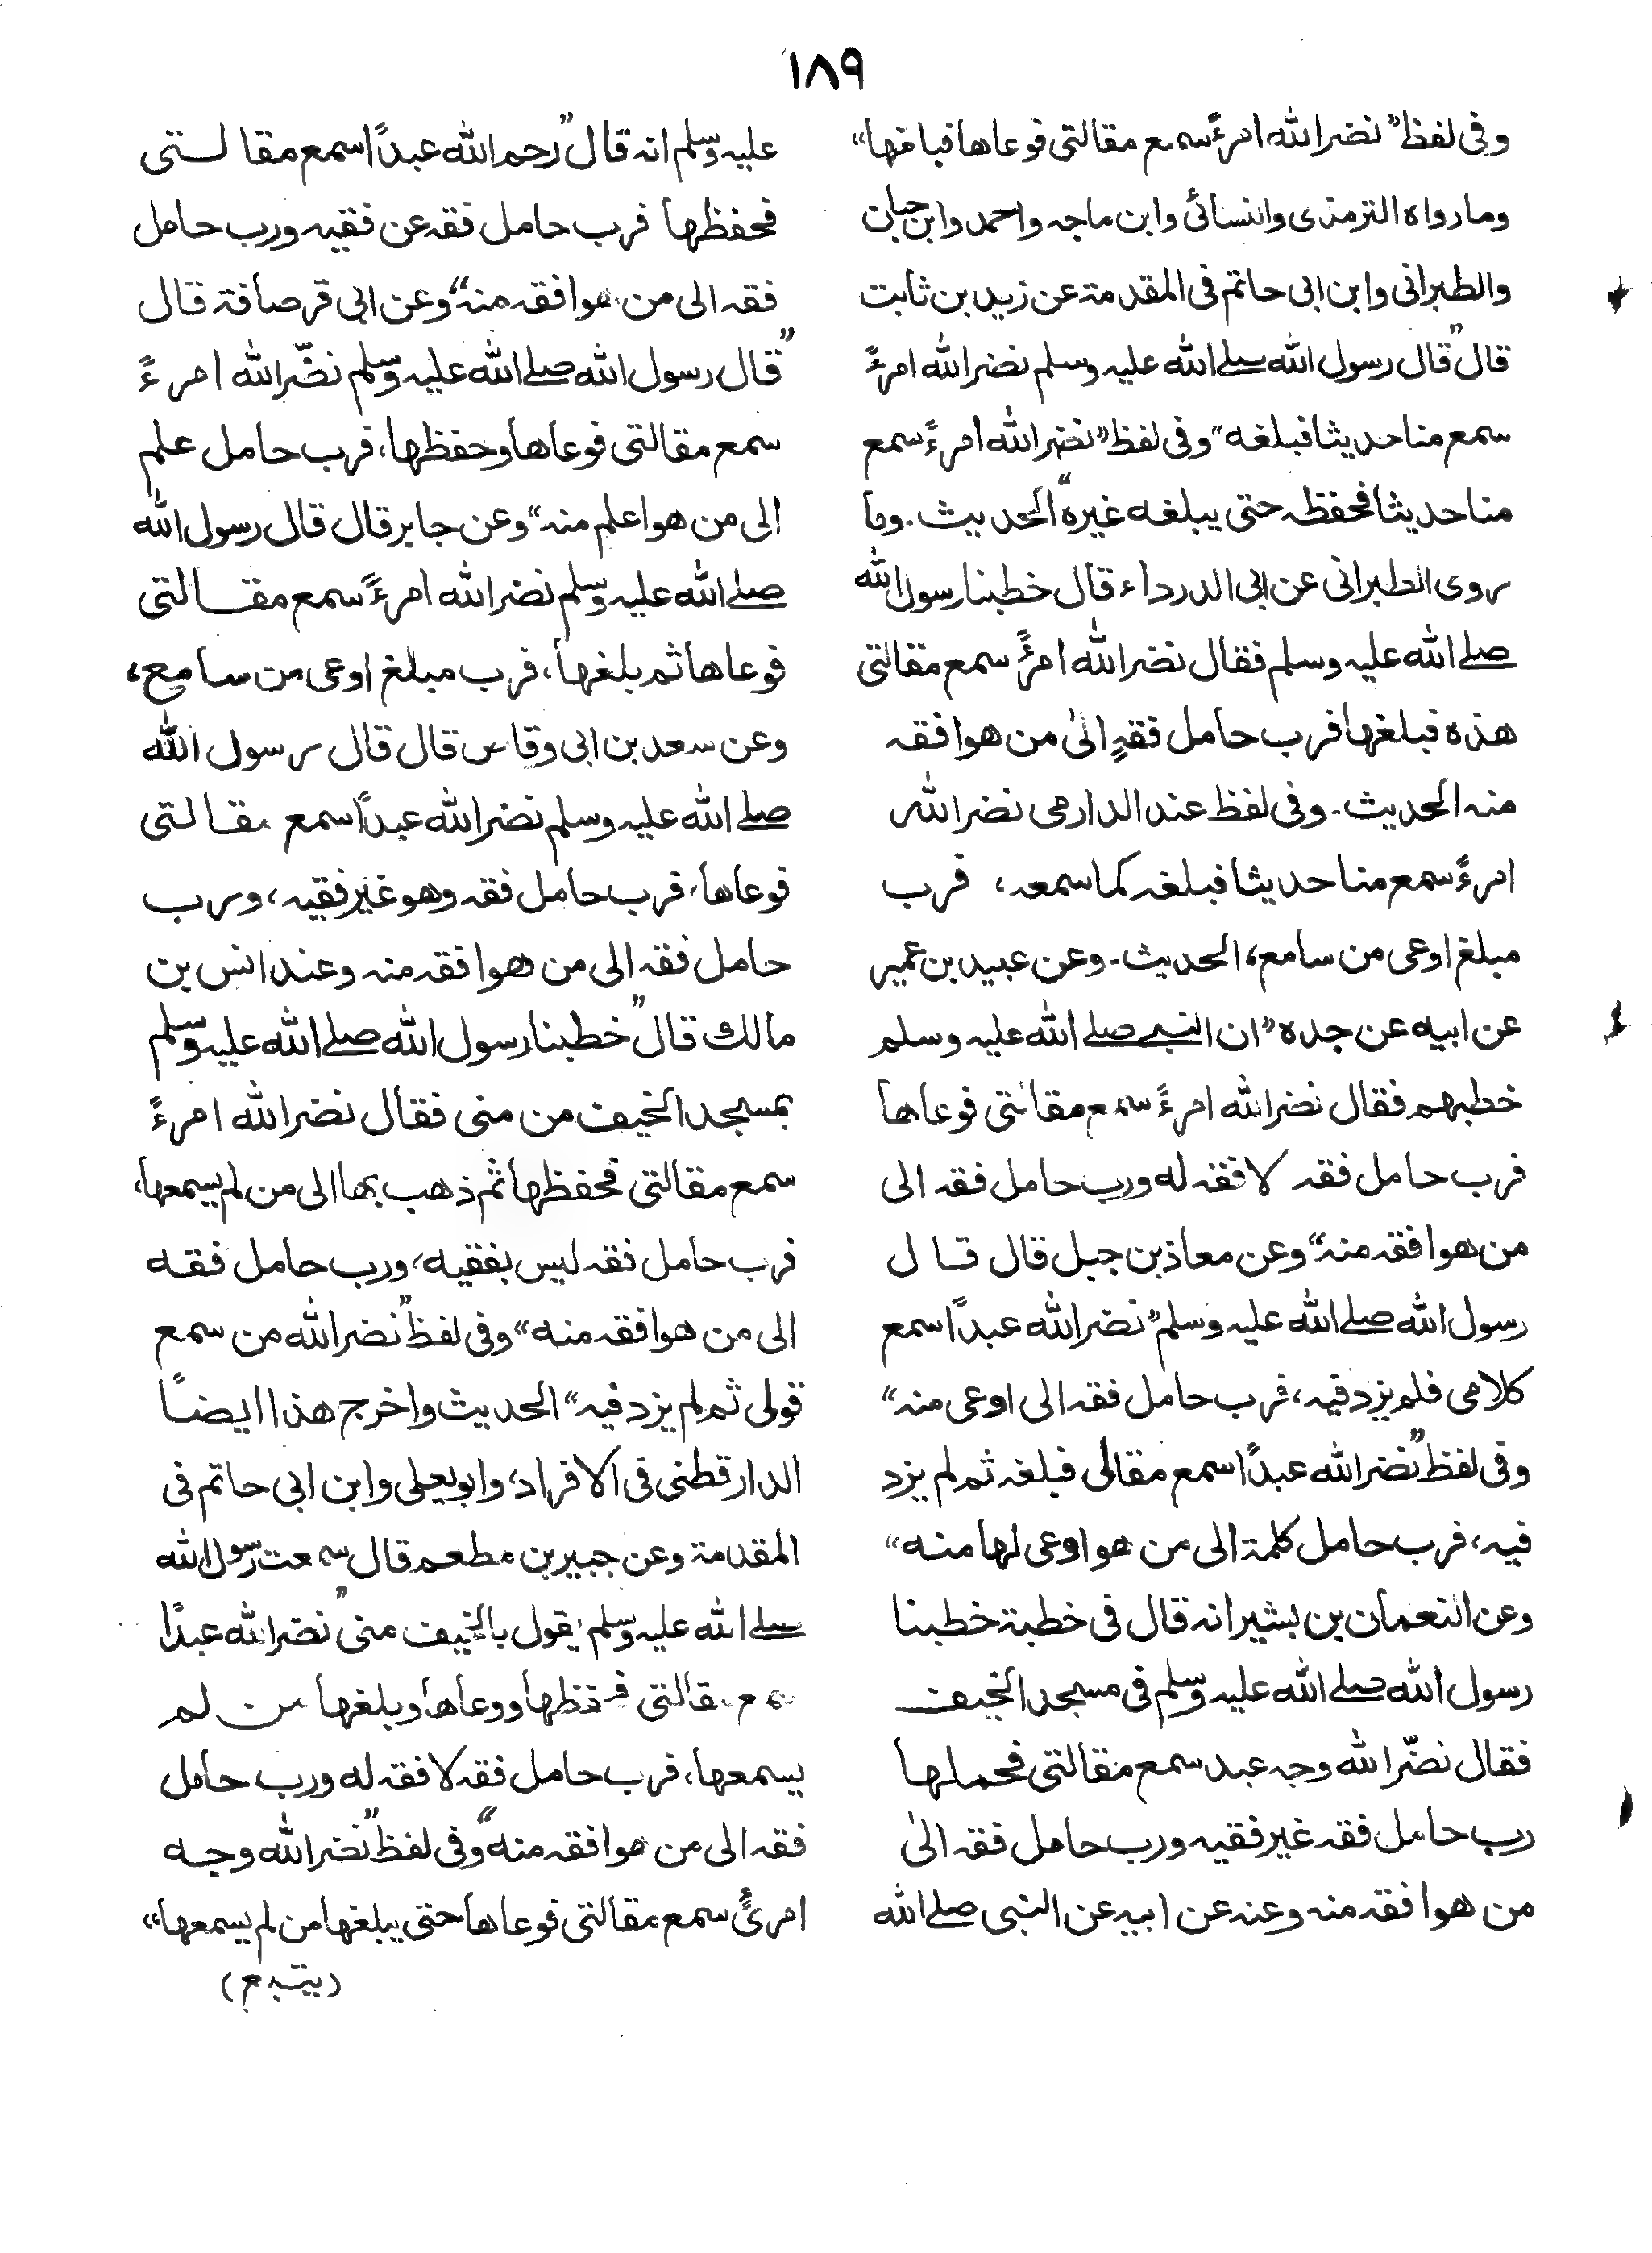 ۱۸۹
وفی لفظ "نضر الله امرءً سمع مقالتی فوعاها فبلغها"
وما رواه الترمذی والنسائی وابن ماجہ واحمد وابن حبان
والطبرانی وابن ابی حاتم فی المقدمة عن زید بن ثابت
قال "قال رسول الله صلے الله علیہ وسلم نضر الله امرءً
سمع منا حدیثا فبلغه" وفی لفظ "نضر الله امرءً سمع
منا حدیثا فحفظہ حتی یبلغه غیره" الحدیث. وما
روی الطبرانی عن ابی الدرداء قال خطبنا رسول الله
صلے الله علیہ وسلم فقال نضر الله امرءً سمع مقالتی
هذه فبلغها فرب حامل فقہٍ الیٰ من هو افقہ
منہ الحدیث۔ وفی لفظ عند الدارمی نضر الله
امرءً سمع منا حدیثا فبلغہ کما سمعہ، فرب
مبلغ اوعی من سامع، الحدیث۔ وعن عبید بن عمیر
عن ابیه عن جده "ان النبی صلے الله علیہ وسلم
خطبهم فقال نضر الله امرءً سمع مقالتی فوعاها
فرب حامل فقہ لا فقہ له ورب حامل فقہ الی
من هو افقہ منہ" وعن معاذ بن جبل قال قال
رسول الله صلے الله علیہ وسلم "نضر الله عبداً سمع
کلامی فلم یزد فیہ، فرب حامل فقہ الی اوعی منہ"
وفی لفظ "نضر الله عبداً سمع مقالی فبلغہ ثم لم یزد
فیہ، فرب حامل کلمة الی من هو اوعی لها منه"
وعن النعمان بن بشیر انہ قال فی خطبة خطبنا
رسول الله صلے الله علیہ وسلم فی مسجد الخیف
فقال نضّر الله وجہ عبد سمع مقالتی فحملها
رب حامل فقہ غیر فقیہ ورب حامل فقہ الیٰ
من هو افقہ منہ وعنہ عن ابیہ عن النبی صلے الله
علیہ وسلم انہ قال "رحم الله عبداً اسمع مقالتی
فحفظها فرب حامل فقہ عن فقیہ ورب حامل
فقہ الی من هو افقہ منہ" وعن ابی قرصافة قال
"قال رسول الله صلے الله علیہ وسلم نضّر الله امرءً
سمع مقالتی فوعاها وحفظها، فرب حامل علم
الی من هو اعلم منہ" وعن جابر قال قال رسول الله
صلے الله علیہ وسلم نضر الله امرءً سمع مقالتی
فوعاها ثم بلغها، فرب مبلغ اوعی من سامع،
وعن سعد بن ابی وقاص قال قال رسول الله
صلے الله علیہ وسلم نضر الله عبداً سمع مقالتی
فوعاها، فرب حامل فقہ وهو غیر فقیہ، ورب
حامل فقہ الی من هو افقہ منہ وعند انس بن
مالك قال "خطبنا رسول الله صلے الله علیہ وسلم
بمسجد الخیف من منی فقال نضر الله امرءً
سمع مقالتی فحفظها ثم ذهب بها الی من لم یسمعها،
فرب حامل فقہ لیس بفقیه، ورب حامل فقه
الی من هو افقہ منه" وفی لفظ "نضر الله من سمع
قولی ثم لم یزد فیہ" الحدیث واخرج هذا ایضاً
الدارقطنی فی الافراد، وابو یعلی وابن ابی حاتم فی
المقدمة وعن جبیر بن مطعم قال سمعت رسول الله
صلے الله علیہ وسلم یقول بالخیف منی "نضر الله عبداً
سمع مقالتی فحفظها ووعاها وبلغها من لم
یسمعها، فرب حامل فقہ لا فقہ له ورب حامل
فقہ الی من هو افقہ منه" وفی لفظ "نضر الله وجه
امرئٍ سمع مقالتی فوعاها حتی یبلغها من لم یسمعها"
(یتبع)